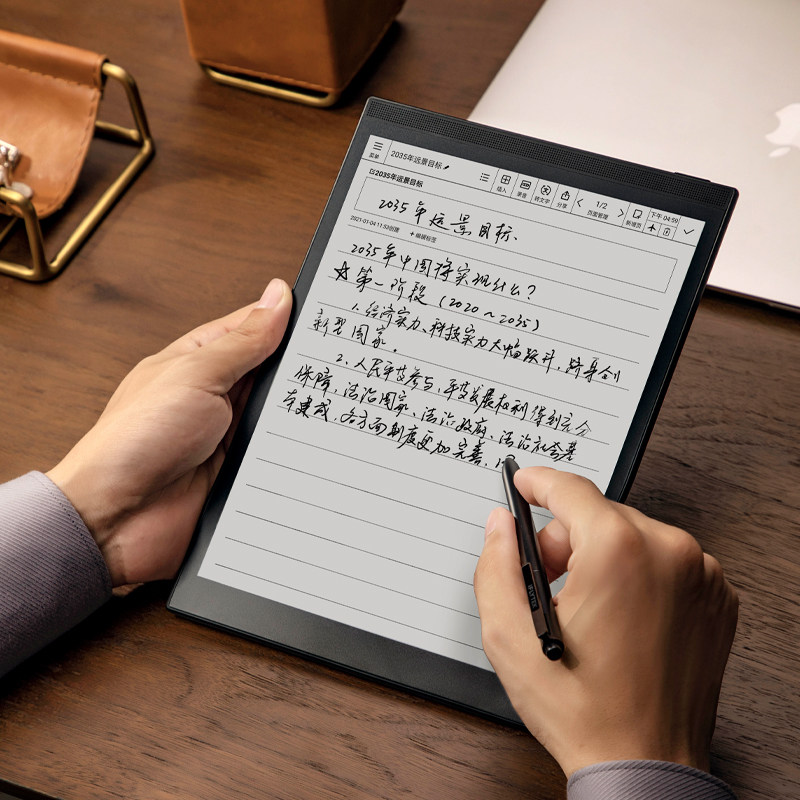 菜单 2035年远景目标 插入 录音 转文字 分享 1/2 页面管理 新增页 下午 04:59
以2035年远景目标
2035年远景目标.
2021-03-04 11:53创建 +编辑标签
2035年中国将实现什么?
☆第一阶段(2020~2035)
1.经济实力、科技实力大幅跃升,跻身创
新型国家.
2.人民平等参与,平等发展权利得到充分
保障,法治国家、法治政府、法治社会基
本建成.各方面制度更加完善.